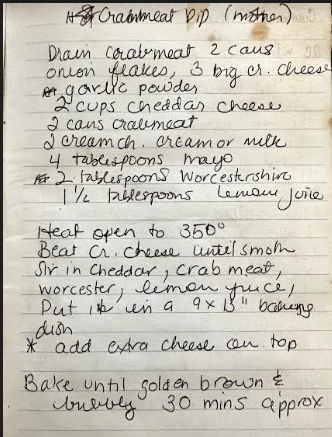 Crabmeat Dip (mother)
Drain Crabmeat 2 cans
onion flakes, 3 big cr. cheese
garlic powder
2 cups cheddar cheese
2 cans crabmeat
2 cream ch. cream or milk
4 tablespoons mayo
2 tablespoons Worcestershire
1½ tablespoons lemon juice
Heat open to 350°
Beat Cr. Cheese until smoth
Stir in Cheddar, Crab meat,
worcester, lemon juice,
Put in a 9x13" baking
dish
* add extra cheese on top
Bake until golden brown &
bubbly 30 mins approx